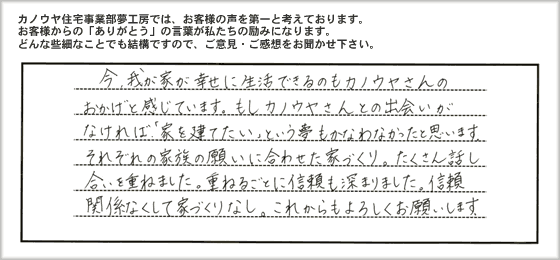 カノウヤ住宅事業部夢工房では、お客様の声を第一と考えております。
お客様からの「ありがとう」の言葉が私たちの励みになります。
どんな些細なことでも結構ですので、ご意見・ご感想をお聞かせ下さい。
今、我が家が幸せに生活できるのもカノウヤさんの
おかげと感じています。もしカノウヤさんとの出会いが
なければ「家を建てたい」という夢もかなわなかったと思います。
それぞれの家族の願いに合わせた家づくり。たくさん話し
合いを重ねました。重ねるごとに信頼も深まりました。信頼
関係なくして家づくりなし。これからもよろしくお願いします。